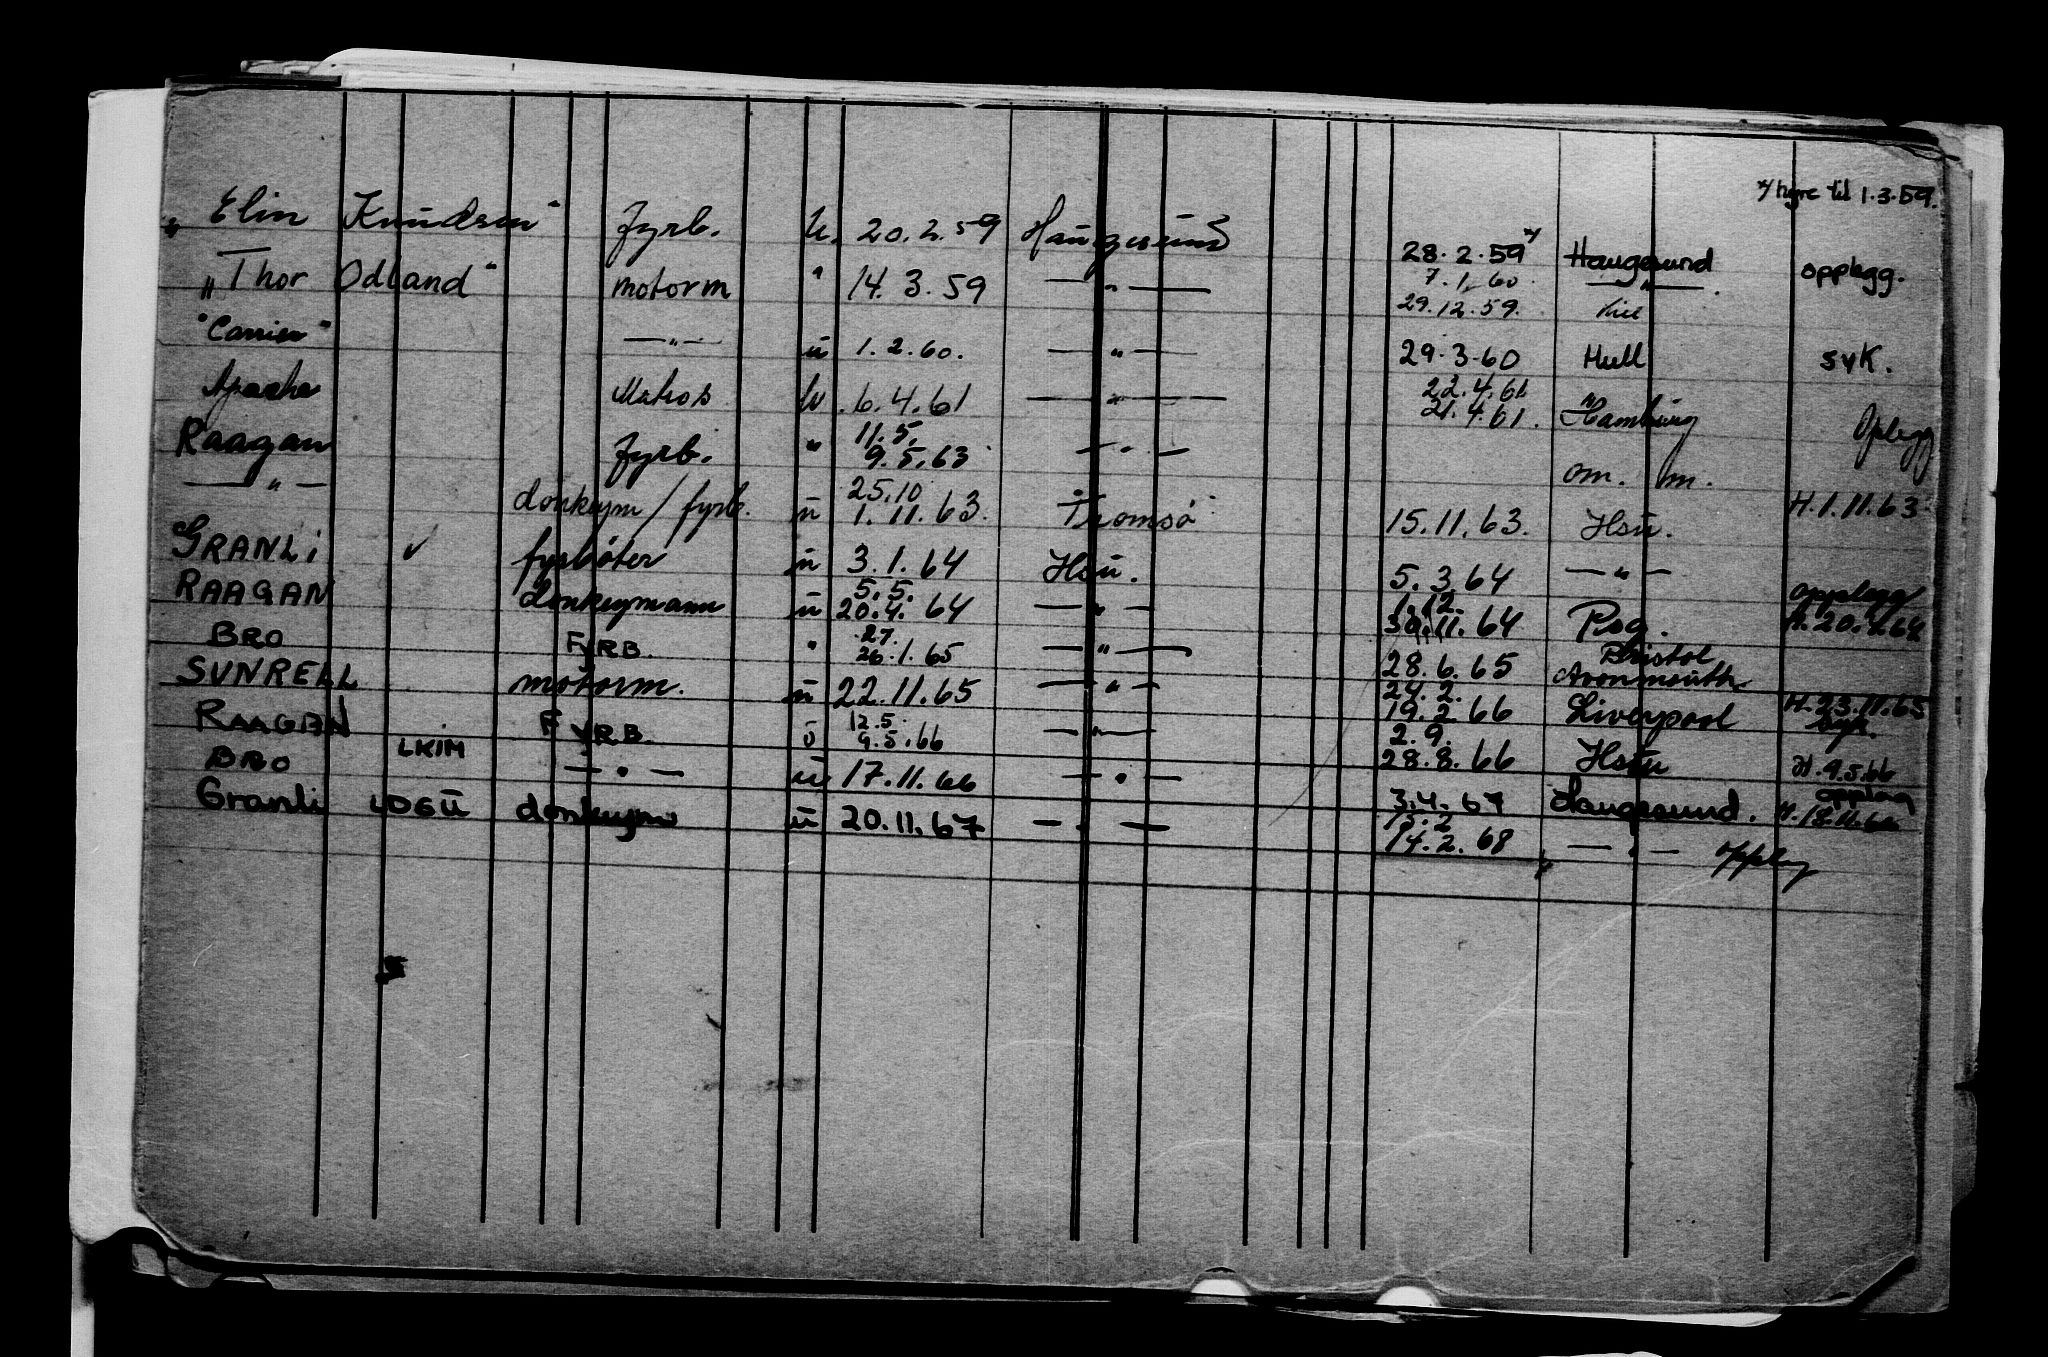 x/ hyre til 1.3.59.
"Elin Knudsen" fyrb. u. 20.2.59 Haugesund 28.2.59 x/ Haugesund opplegg.
"Thor Odland" motorm " 14.3.59 — " — 7.1.60 — " —
29.12.59. Kiel
"Carrier" — " — u 1.2.60. — " — 29.3.60 Hull syk.
Apache Matros u 6.4.61 — " — 22.4.61
21.4.61. Hamburg Oplegg
Raagan fyrb. " 11.5.
9.5.63 — " — om. m.
— " — donkeym/fyrb. u 25.10
1.11.63. Tromsø 15.11.63. Hsu. H.1.11.63
GRANLI ✓ fyrbøter u 3.1.64 Hsu. 5.3.64 — " — opplegg
RAAGAN donkeymann u 5.5.
20.4.64 — " — 1.12.
30.11.64 Psg. H.20.4.64
BRO FYRB. " 27.
26.1.65 — " — 28.6.65 Bristol
Avonmouth
SUNRELL motorm. u 22.11.65 — " — 24.2.
19.2.66 Liverpool H.23.11.65
syk.
RAAGAN FYRB. u 12.5.
9.5.66 — " — 2.9.
28.8.66 Hsu H.9.5.66
BRO LKIM — " — u 17.11.66 — " — 3.4.67 Haugesund. opplag
H.18.11.66
Granli LDGU donkeym u 20.11.67 — " — 15.2
14.2.68 — " — Oppleg